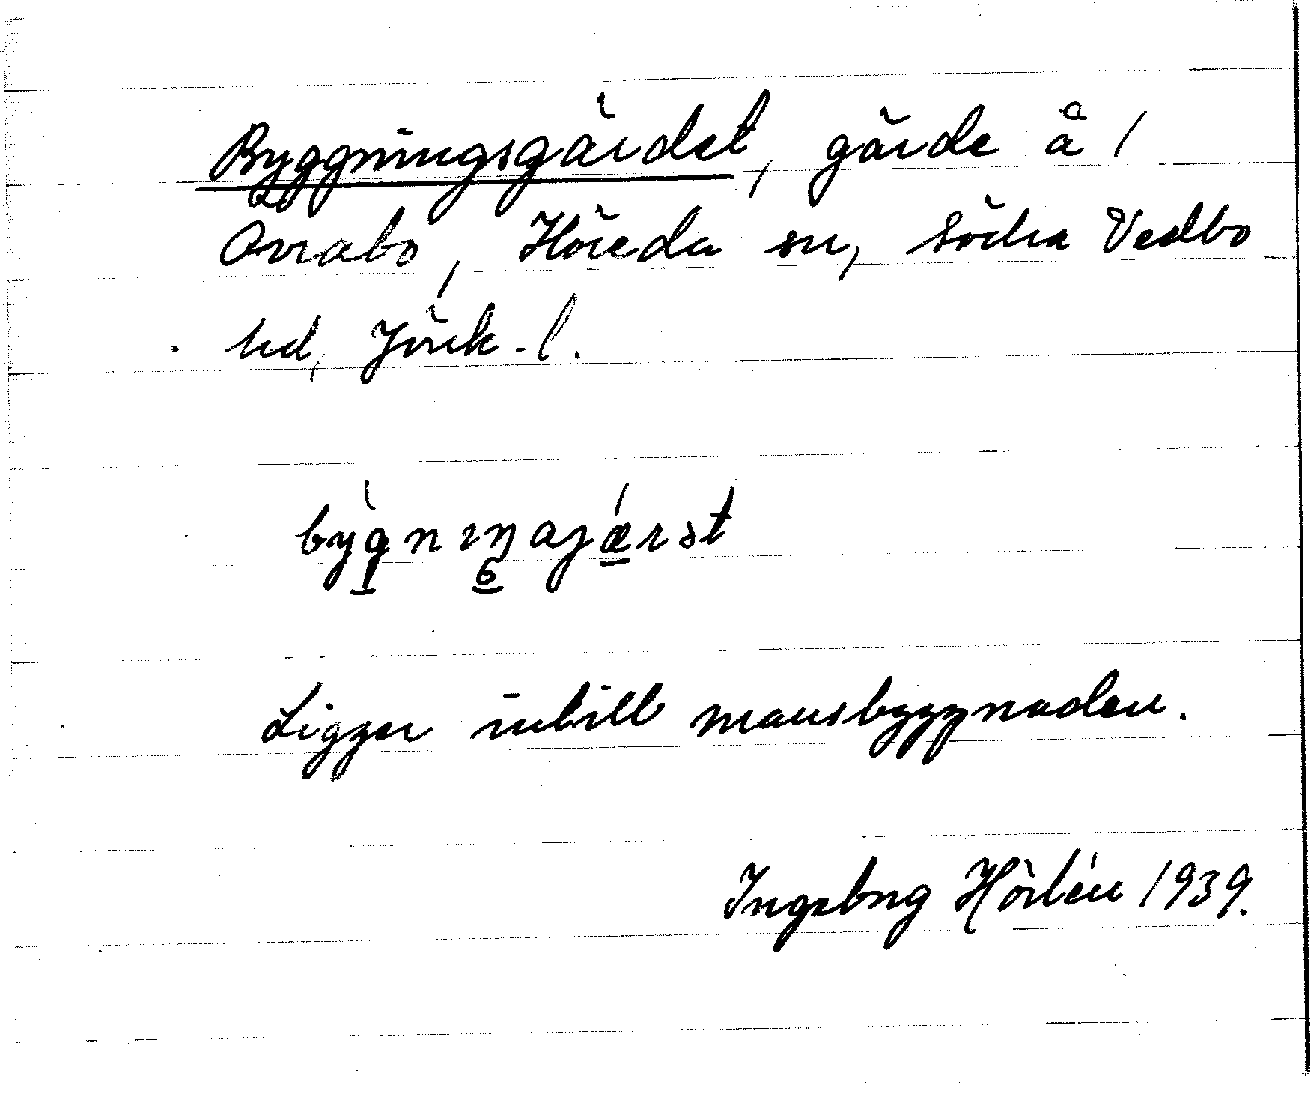 Byggningsgärdet, gärde å 1
Ovrabo, Höreda sn, södra Vedbo
hd, Jönk. l.
bygnıŋajærst
1 6
Ligger intill mansbyggnaden.
Ingeborg Hörlén 1939.